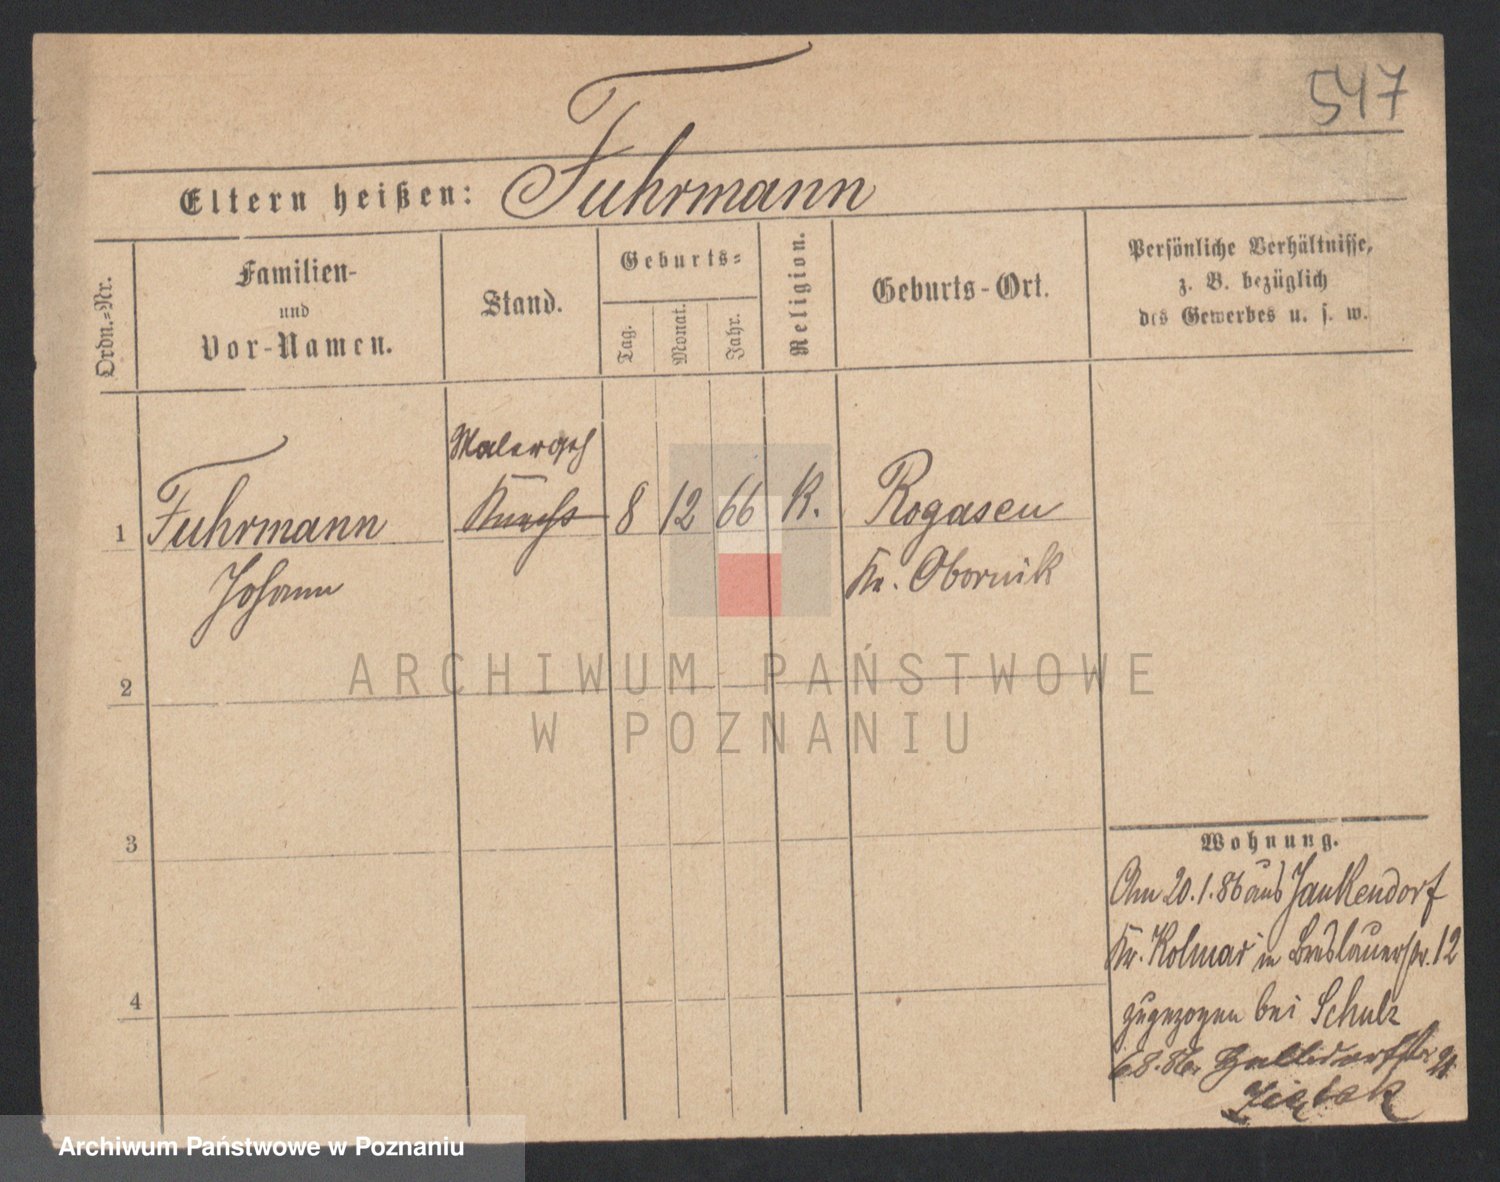 547
Eltern heißen: Fuhrmann
Ordn.-Nr.
Familien-
und
Vor-Namen.
Stand.
Geburts-
Tag.
Monat.
Jahr.
Religion.
Geburts-Ort.
Persönliche Verhältnisse,
z. B. bezüglich
des Gewerbes u. s. w.
Malergeh
1 Fuhrmann Knecht 8 12 66 K. Rogasen
Johann Kr. Obornik
2
3
4
ARCHIWUM PAŃSTWOWE
W POZNANIU
Wohnung.
Am 20.1.86 aus Jankendorf
Kr. Kolmar in Breslauerstr. 12
zugezogen bei Schulz
6.8.86.
Archiwum Państwowe w Poznaniu